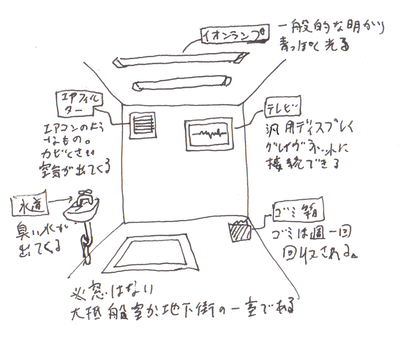 イオンランプ
一般的な明かり
青っぽく光る
エアフィル
ター
エアコンのよう
なもの。
カビくさい
空気が出てくる
テレビ
汎用ディスプレイ
グレイヴネットに
接続できる
水道
臭い水が
出てくる
ゴミ箱
ゴミは週一回
回収される。
※窓はない
大抵船室か地下街の一室である